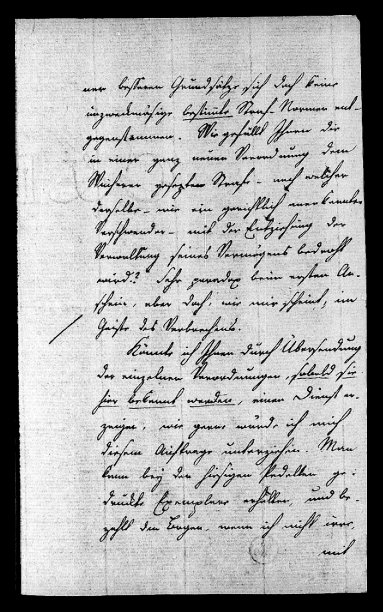 ner besseren Grundsätze sich doch keine
unzweckmäsige bestimte Straf-Normen ent-
gegenstemmen. Wie gefällt Ihnen die
in einer ganz neuen Verordnung dem
Wucherer gesezten Strafe – nach welcher
derselbe – wie ein gerichtlich anerkannter
Verschwender – mit der Entziehung der
Verwaltung seines Vermögens bedroht
wird? Sehr paradox beim ersten An-
schein, aber doch, wie mir scheint, im
Geiste des Verbrechens.
Könnte ich Ihnen durch Übersendung
der einzelnen Verordnungen, sobald sie
hier bekannt werden, einen Dienst er-
zeigen, wie gerne würde ich mich
diesem Auftrage unterziehen. Man
kann bey den hiesigen Pedellen ge-
druckte Exemplare erhalten, und be-
zahlt den Bogen, wenn ich nicht irre,
mit